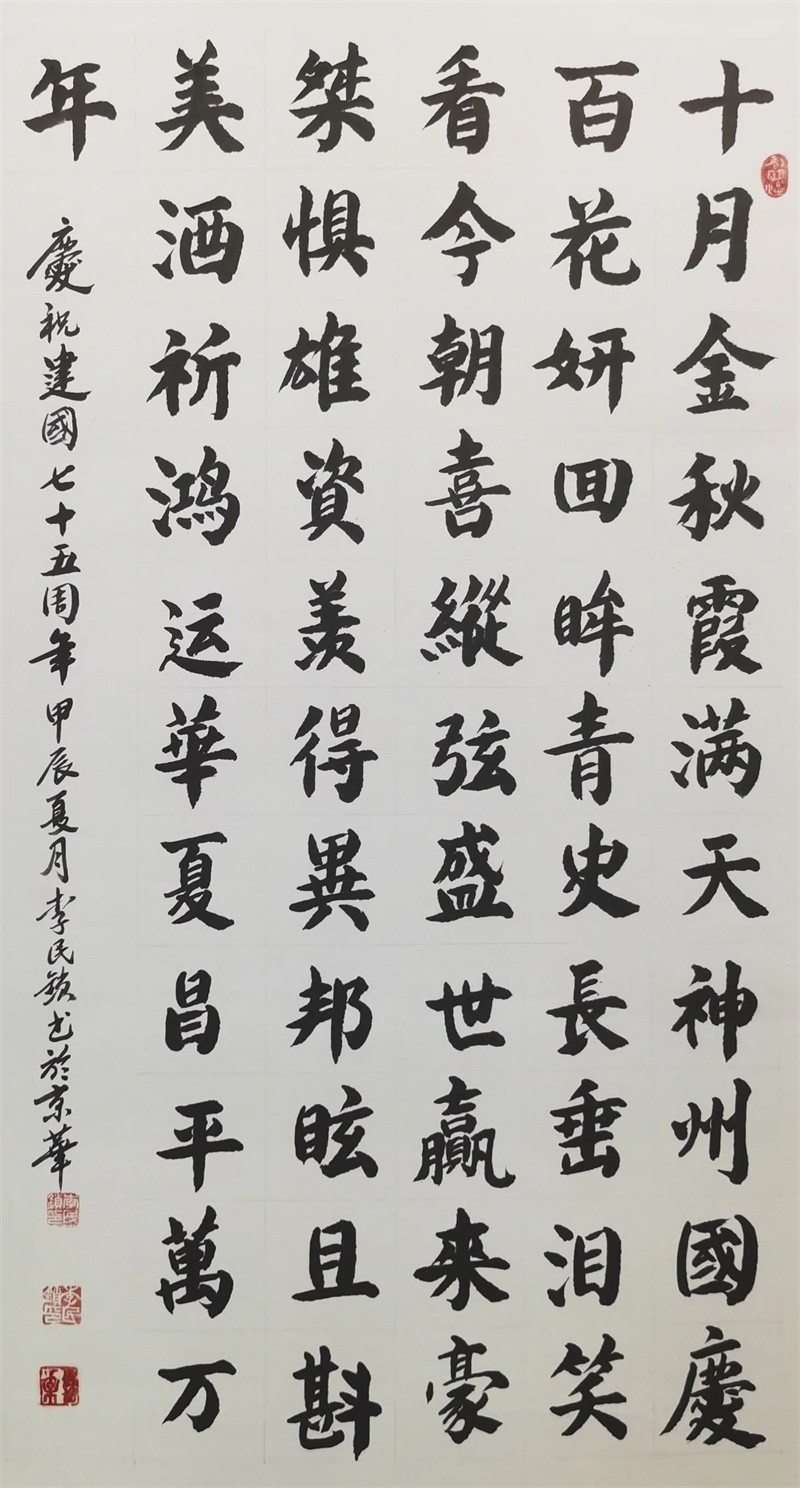 十月金秋霞满天神州國慶
百花妍回眸青史長垂泪笑
看今朝喜縱弦盛世贏来豪
桀惧雄資羨得異邦眩且斟
美酒祈鴻运華夏昌平萬万
年
慶祝建國七十五周年甲辰夏月李民鎖书於京華